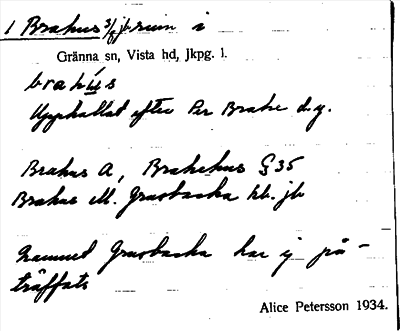 1 Brahus 3/8 jb ruin i
Gränna sn, Vista hd, Jkpg. l.
brahús
Uppkallat efter Per Brahe d.y.
Brahus A, Brahehus G 35
Brahus El. Grusbacka hb. jb
Namnet Grusbacka har ej på-
träffats
Alice Petersson 1934.